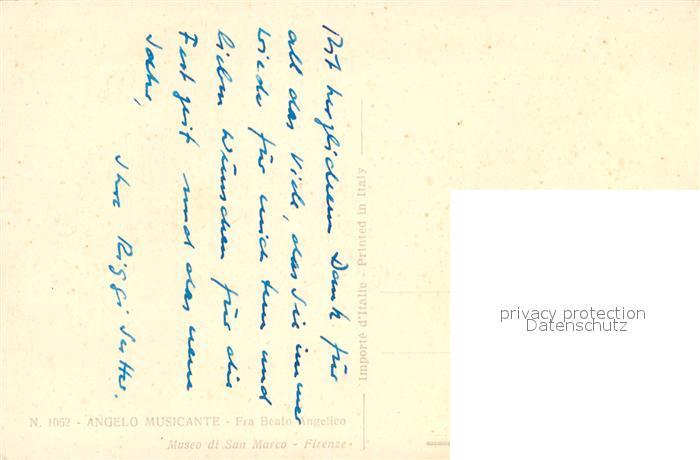 Mit herzlichem Dank für
all das Viele, das Sie immer
wieder für mich tun und
lieben Wünschen für die
Festzeit und das neue
Jahr,
Ihre
N. 1062 - ANGELO MUSICANTE - Fra Beato Angelico
Museo di San Marco - Firenze
Importé d'Italie - Printed in Italy
privacy protection
Datenschutz